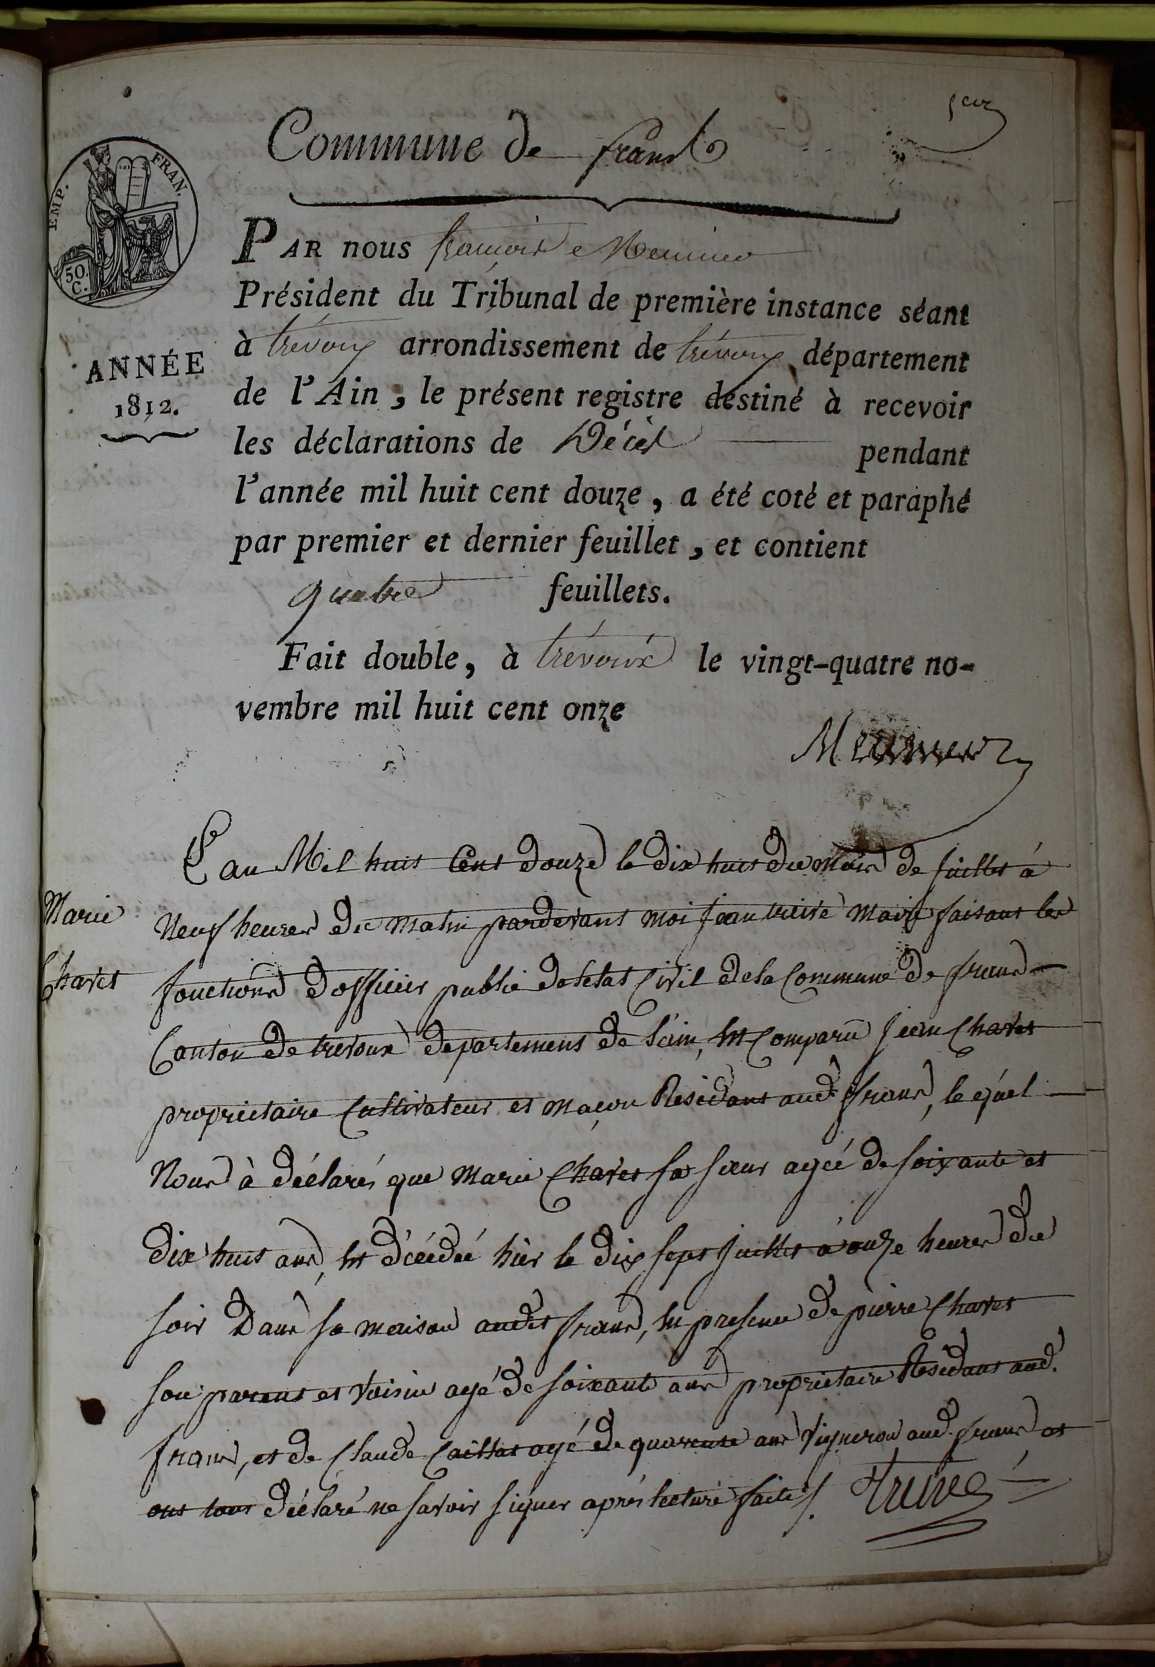 1er
Commune de frans
EMP. FRAN.
50. C.
PAR nous françois Meunier
Président du Tribunal de première instance séant
à trévoux arrondissement de trévoux département
ANNÉE
1812.
de l'Ain, le présent registre destiné à recevoir
les déclarations de Décès pendant
l'année mil huit cent douze, a été coté et paraphé
par premier et dernier feuillet, et contient
quatre feuillets.
Fait double, à trévoux le vingt-quatre no-
vembre mil huit cent onze
Meunier
L'an Mil huit Cent douze le dix huit du mois de Juillet à
Marie
Neuf heures du matin pardevant moi Jean treive maire faisant les
Charet
fonctions D'officier public de letat Civil de la Commune de frans
Canton de trevoux departement de L'ain, est Comparu Jean Charet
proprietaire Cultivateur et maçon Residant aud. frans, lequel
Nous à déclaré que Marie Charet sa sœur agée de soixante et
dix huit ans, est décédée hier le dix sept Juillet à onze heures du
soir Dans sa maison audit frans, en presence de pierre Charet
son parent et voisin agé de soixante ans proprietaire Residant aud.
frans, et de Claude Caillat agé de quarente ans Vigneron aud. frans et
ont tous déclaré ne savoir signer aprés lecture faite.
Treive